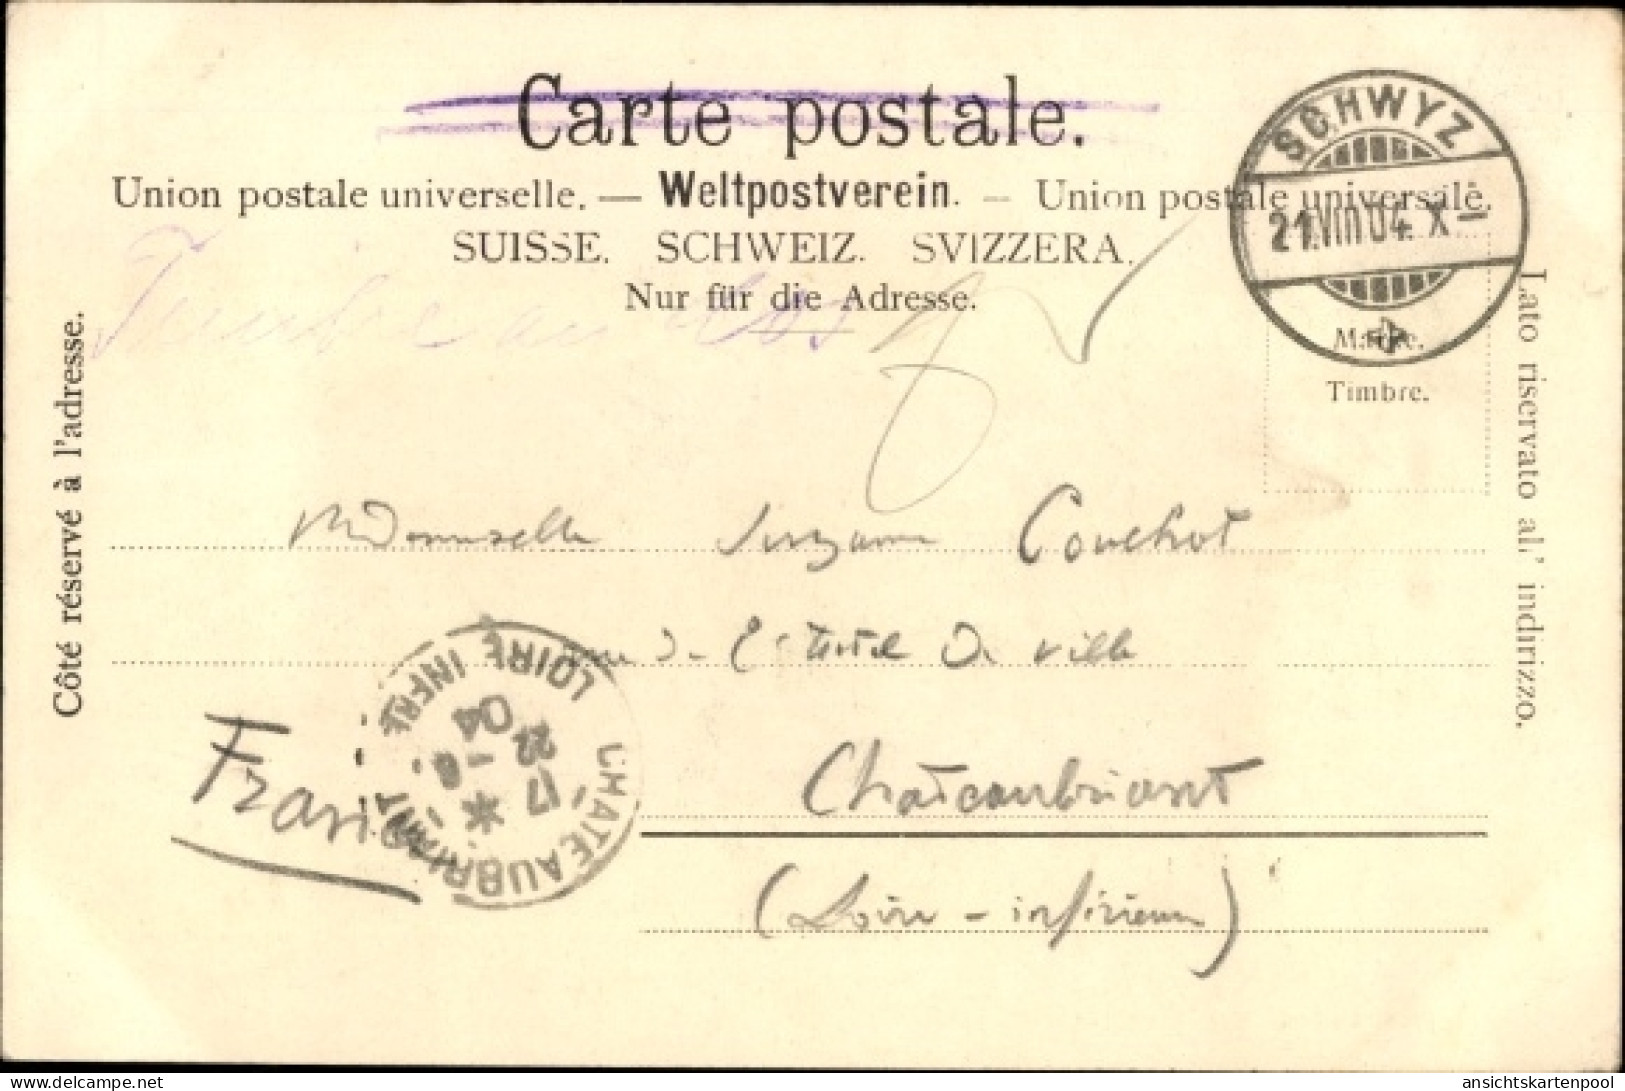 Carte postale.
Union postale universelle. — Weltpostverein. — Union postale universale.
SUISSE. SCHWEIZ. SVIZZERA.
Nur für die Adresse.
SCHWYZ
21.VIII.04. X—
Marke.
Timbre.
Côté réservé à l'adresse.
Lato riservato all' indirizzo.
Timbre au dos
Mademoiselle Suzanne Couchot
rue de l'Hotel De Ville
Chateaubriant
(Loire-inférieure)
France
CHATEAUBRIANT
LOIRE INFRE
17
22 - 8
04
www.delcampe.net
ansichtskartenpool